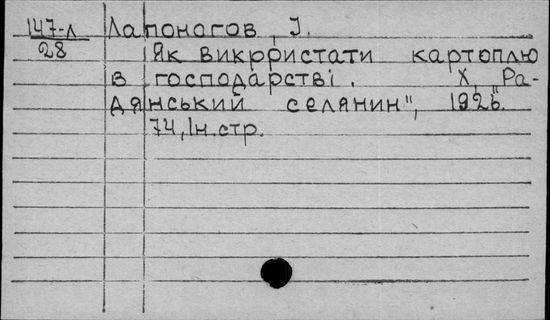 147-л Лапоногов, І.
28 Як використати картоплю
в господарстві. Х, „Ра-
дянський селянин", 1926.
74, Ін. стр.